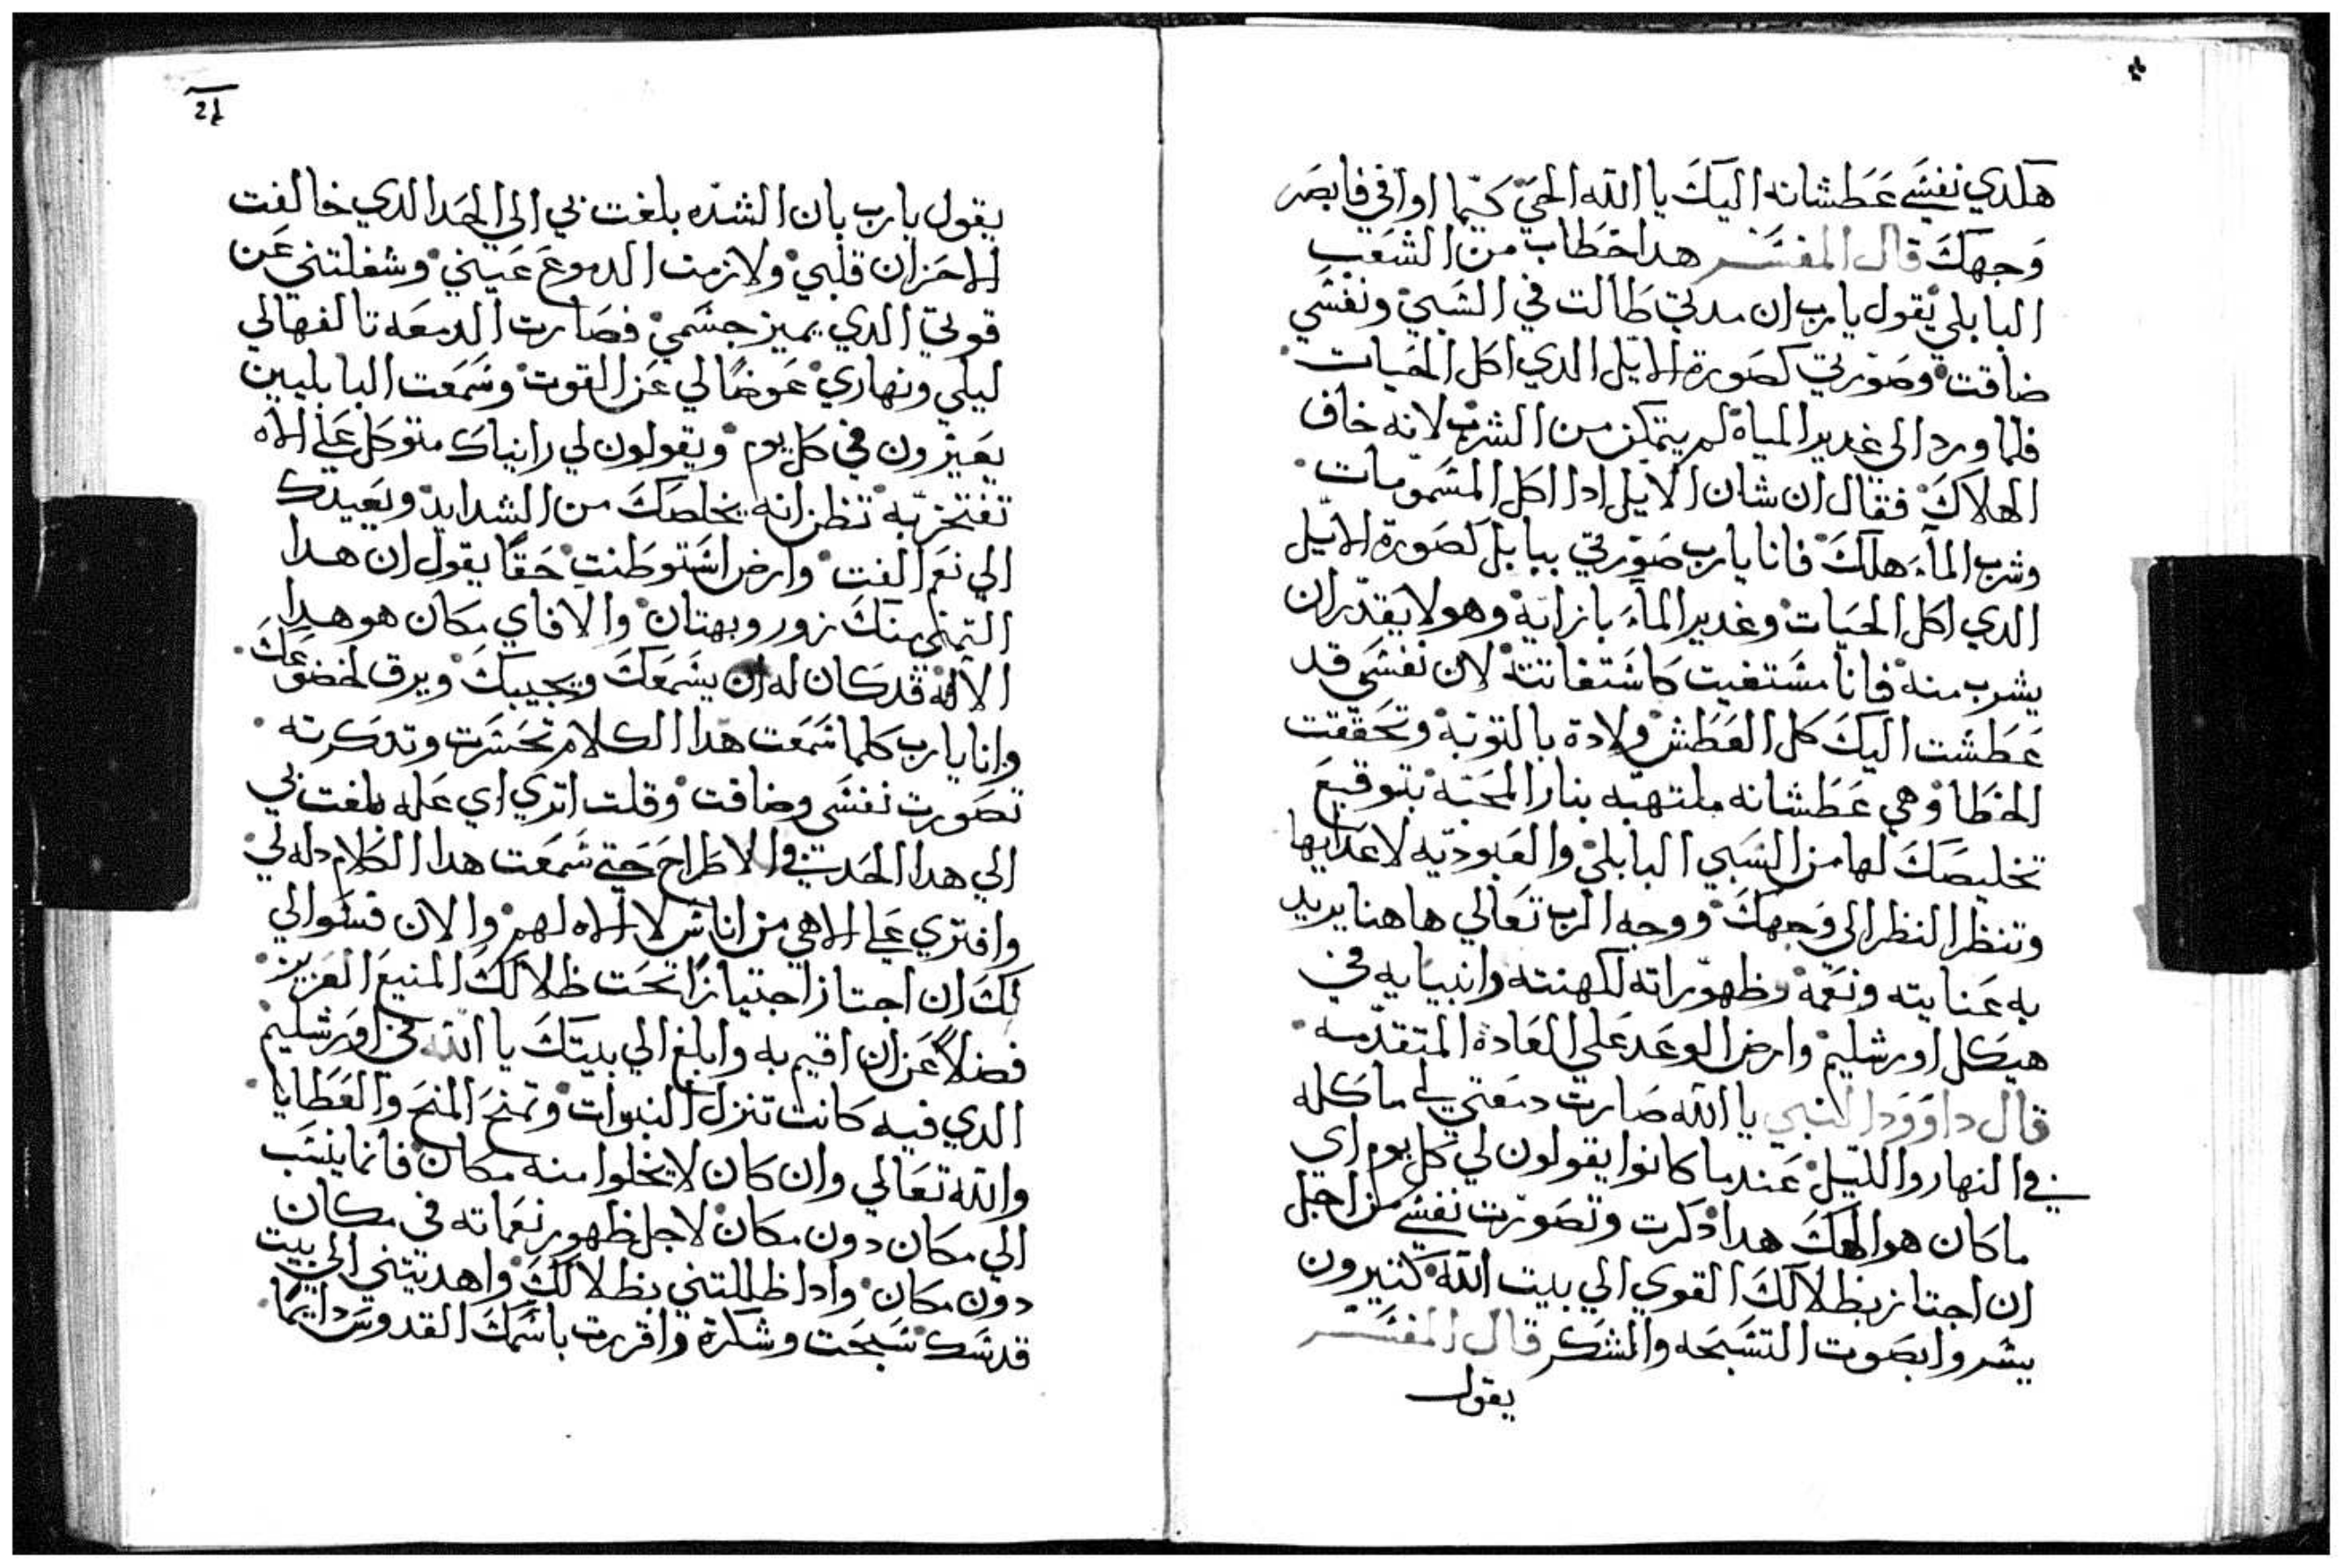 هكدي نفسي عطشانه اليك يا الله الحي كيما اوافي فابصر
وجهك قال المفسر هدا خطاب من الشعب
البابلي يقول يارب ان مدتي طالت في السبي ونفسي
ضاقت وصورتي كصورة الايل الدي اكل الحيات
فلما ورد الى غدير المياه لم يتمكن من الشرب لانه خاف
الهلاك فقال ان شان الايل ادا اكل المسمومات
وشرب الماء هلك فانا يارب صورتي ببابل كصورة الايل
الدي اكل الحيات وغدير الماء بازايه وهو لا يقدر ان
يشرب منه فانا مستغيت كاستغاتته لان نفسي قد
عطشت اليك كل العطش ولادة بالتوبه وتحققت
الخطا وهي عطشانه ملتهبه بنار المحبه بتوقيع
تخليصك لها من السبي البابلي والعبوديه لاعدايها
وتنظر النظر الى وجهك ووجه الرب تعالي هاهنا يريد
به عنايته ونعمه وظهوراته لكهنته وانبيايه في
هيكل اورشليم وارض الوعد على العادة المتقدمه
قال داوود النبي يا الله صارت دمعتي لي ماكله
في النهار والليل عندما كانوا يقولون لي كل يوم اي
ما كان هو الهك هدا دكرت وتصورت نفسي من اجل
ان اجتاز بظلالك القوي الي بيت الله كتيرون
يبشروا بصوت التسبحه والشكر قال المفسر
يقول
21
يقول يارب بان الشده بلغت بي الي الحد الدي خالفت
الاحزان قلبي ولازمت الدموع عيني وشغلتني عن
قوتي الدي يميز جسمي فصارت الدمعه تالفهالي
ليلي ونهاري عوضا لي عن القوت وسمعت البابليين
يعيرون في كل يوم ويقولون لي رانياك متوكل علي الاه
تفتخر به تظن انه يخلصك من الشدايد ويعيدك
الي نعم الفت وارض استوطنت حقا يقول ان هدا
التمني منك زور وبهتان والا فاي مكان هو هدا
الاله قد كان له ان يسمعك ويجيبك ويرق لخضوعك
وانا يارب كلما سمعت هدا الكلام تحسرت وتدكرته
تصورت نفسي وضاقت وقلت اتري اي عله بلغت بي
الي هدا الحد في الاطراح حتي سمعت هدا الكلام دله لي
وافتري علي الاهي من اناس لا الاه لهم والان فسوالي
لك ان اجتاز اجتيازا تحت ظلالك المنيع العزيز
فضلا عن ان اقيم به وابلغ الي بيتك يا الله في اورشليم
الدي فيه كانت تنزل النبوات وتمنح المنح والعطايا
والله تعالي وان كان لا يخلوا منه مكان فانما ينسب
الي مكان دون مكان لاجل ظهور نعماته في مكان
دون مكان وادا ظللتني بظلالك واهديتني الي بيت
قدسك سبحت وشكرة واقررت باسمك القدوس دايما